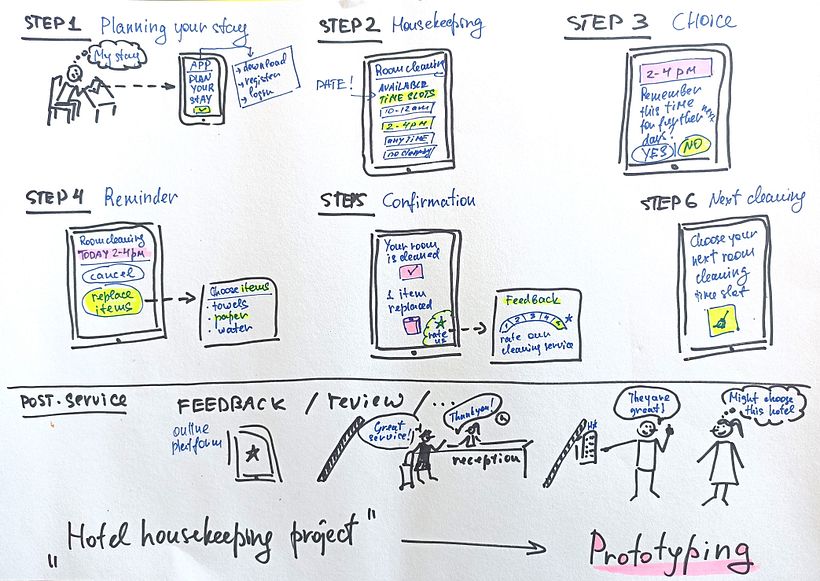 STEP 1 Planning your stay
My stay
APP
PLAN
YOUR
STAY
→ download
→ register
→ login
STEP 2 Housekeeping
DATE!
Room cleaning
AVAILABLE
TIME SLOTS
10-12am
2-4pm
any time
no cleaning
STEP 3 CHOICE
2-4 pm
Remember
this time
for further
days?
YES
NO
STEP 4 Reminder
Room cleaning
TODAY 2-4pm
cancel
replace
items
Choose items
• towels
• paper
• water
STEP5 Confirmation
Your room
is cleaned
1 item
replaced
rate
us
Feedback
1 2 3 4 5
rate our
cleaning service
STEP 6 Next cleaning
Choose your
next room
cleaning
time slot
POST-SERVICE
FEEDBACK / review / ...
online
platform
Great
service!
Thank you!
reception
They are
great!
Might choose
this hotel
"Hotel housekeeping project"
Prototyping